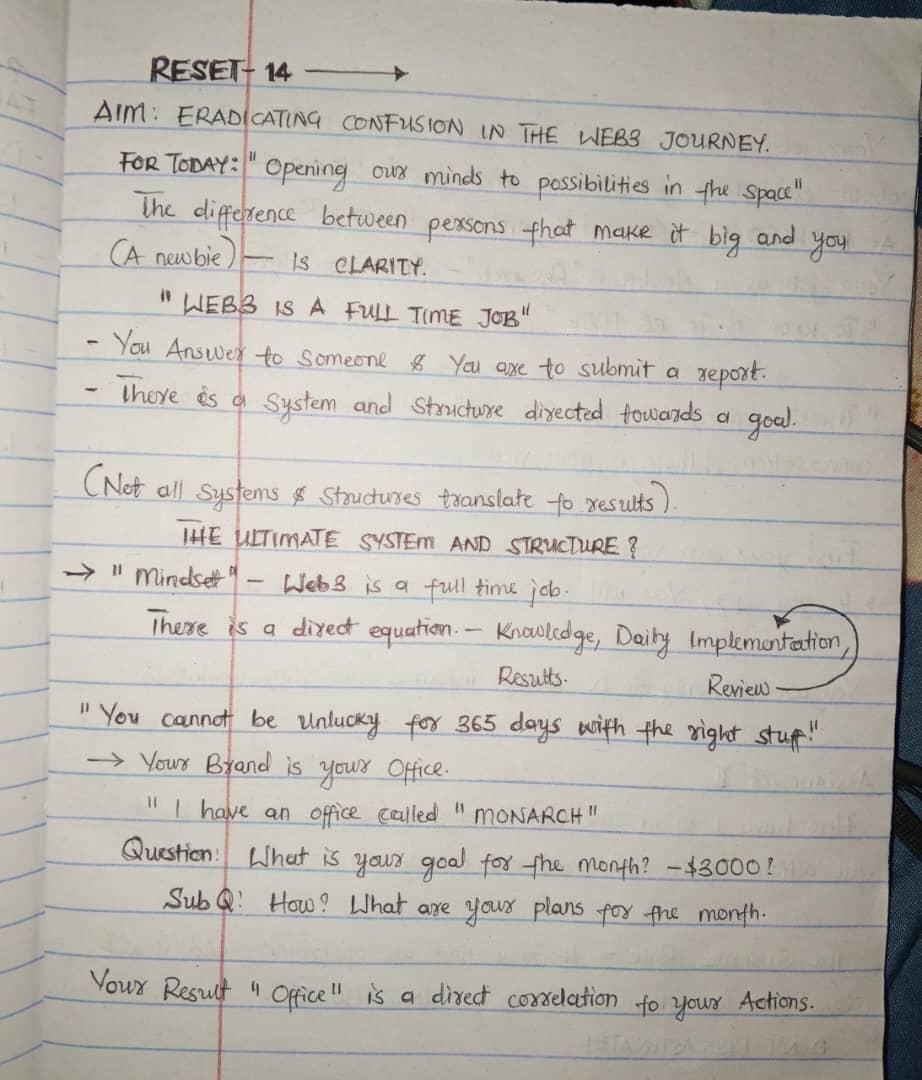 RESET - 14 ⟶
AIM: ERADICATING CONFUSION IN THE WEB3 JOURNEY.
FOR TODAY: "Opening our minds to possibilities in the space"
The difference between persons that make it big and you
(A newbie) — IS CLARITY.
"WEB3 IS A FULL TIME JOB"
- You Answer to Someone & You are to submit a report.
- There is a System and Structure directed towards a goal.
(Not all Systems & Structures translate to results).
THE ULTIMATE SYSTEM AND STRUCTURE?
→ "Mindset" - Web3 is a full time job.
There is a direct equation. — Knowledge, Daily Implementation,
Results. Review
"You cannot be unlucky for 365 days with the right stuff!"
→ Your Brand is your Office.
"I have an office called "MONARCH"
Question: What is your goal for the month? - $3000!
Sub Q: How? What are your plans for the month.
Your Result "Office" is a direct correlation to your Actions.